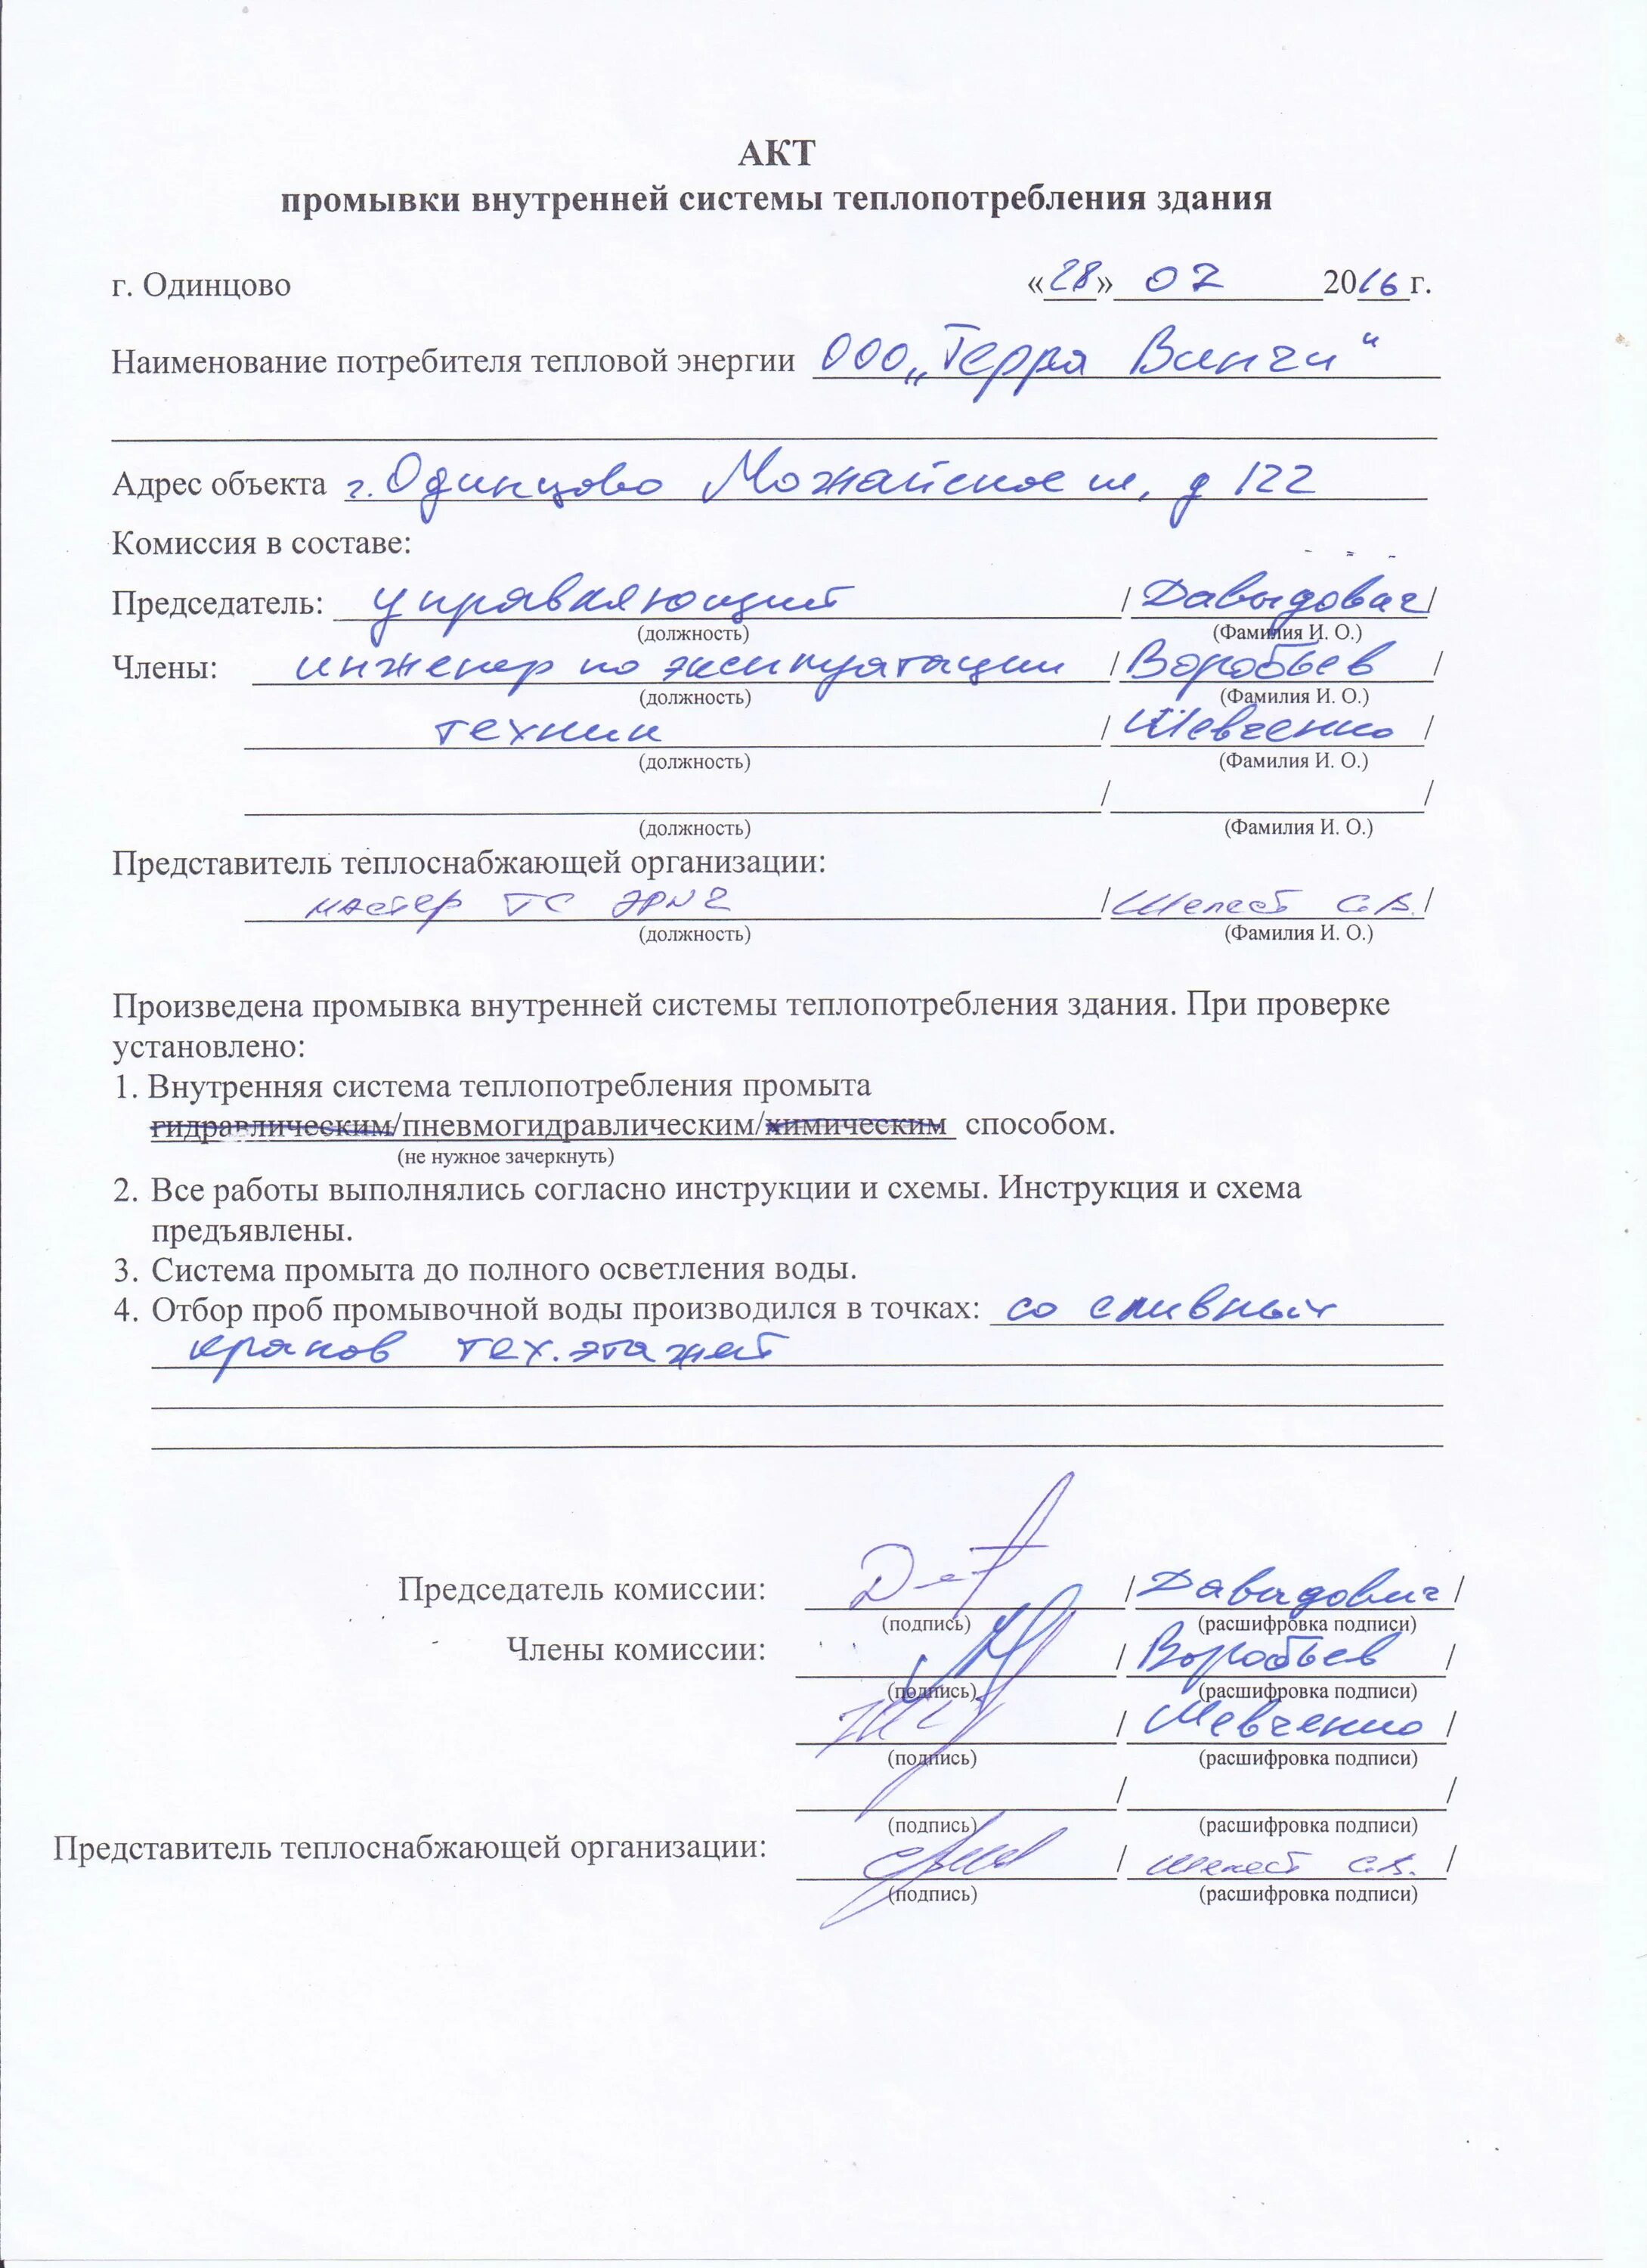 АКТ
промывки внутренней системы теплопотребления здания
г. Одинцово «28» 07 2016 г.
Наименование потребителя тепловой энергии ООО „Терра Винчи“
Адрес объекта г. Одинцово Можайское ш, д 122
Комиссия в составе:
Председатель: управляющий / Давыдович/
(должность) (Фамилия И. О.)
Члены: инженер по эксплуатации / Воробьев /
(должность) (Фамилия И. О.)
техник / Шевченко /
(должность) (Фамилия И. О.)
/ /
(должность) (Фамилия И. О.)
Представитель теплоснабжающей организации:
мастер ТС ЭР№2 /Шелест С.В./
(должность) (Фамилия И. О.)
Произведена промывка внутренней системы теплопотребления здания. При проверке
установлено:
1. Внутренняя система теплопотребления промыта
гидравлическим/пневмогидравлическим/химическим способом.
(не нужное зачеркнуть)
2. Все работы выполнялись согласно инструкции и схемы. Инструкция и схема
предъявлены.
3. Система промыта до полного осветления воды.
4. Отбор проб промывочной воды производился в точках: со сливных
кранов тех.этажей
Председатель комиссии: / Давыдович /
(подпись) (расшифровка подписи)
Члены комиссии: / Воробьев /
(подпись) (расшифровка подписи)
/ Шевченко /
(подпись) (расшифровка подписи)
/ /
(подпись) (расшифровка подписи)
Представитель теплоснабжающей организации: / Шелест С.В. /
(подпись) (расшифровка подписи)